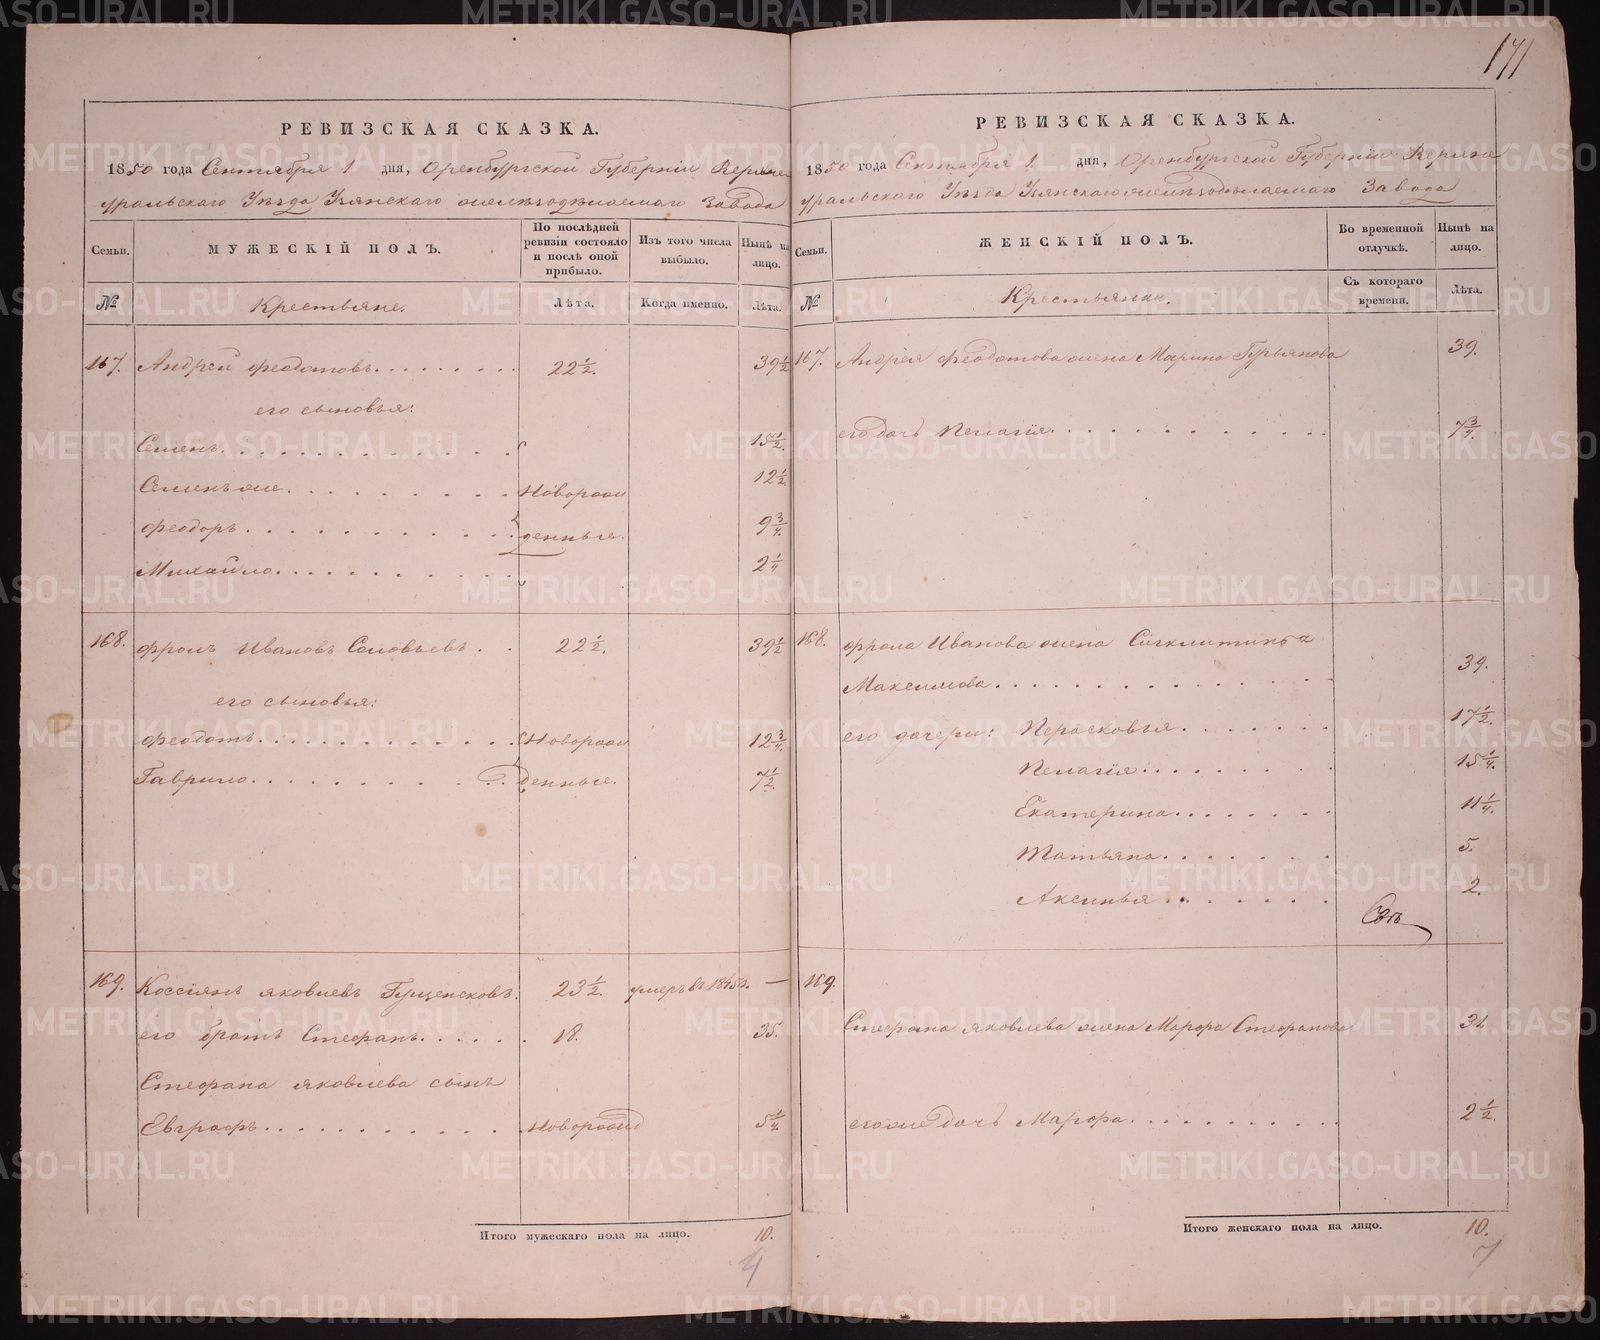 171
РЕВИЗСКАЯ СКАЗКА.
1850 года Сентября 1 дня, Оренбургской Губерніи Верхне
уральскаго Уѣзда Узянскаго желѣзодѣлаемаго Завода
Семьи. МУЖЕСКІЙ ПОЛЪ. По послѣдней ревизіи состояло и послѣ оной прибыло. Изъ того числа выбыло. Нынѣ на лицо.
№ Крестьяне. Лѣта. Когда именно. Лѣта.
167. Андрей Феодотовъ 22 1/2. 39 1/2
его сыновья:
Семенъ 15 1/2.
Семенъ же Новорож 12 1/2.
Феодоръ денные. 9 3/4.
Михайло 2 1/4
168. Фролъ Ивановъ Соловьевъ 22 1/2. 39 1/2
его сыновья:
Феодотъ Новорож 12 3/4.
Гаврило денные. 7 1/2.
169. Коссіянъ Яковлевъ 23 1/2. умеръ въ —
его братъ Стефанъ 18. 35.
Стефана Яковлева сынъ
Евграфъ Новорожд 5 1/4.
Итого мужескаго пола на лицо. 10.
4
РЕВИЗСКАЯ СКАЗКА.
1850 года Сентября 1 дня, Оренбургской Губерніи Верхне
уральскаго Уѣзда Узянскаго желѣзодѣлаемаго Завода
Семьи. ЖЕНСКІЙ ПОЛЪ. Во временной отлучкѣ. Нынѣ на лицо.
№ Крестьянки. Съ котораго времени. Лѣта.
167. Андрея Феодотова жена Марина Гурьянова 39.
его дочь Пелагія 7 3/4.
168. Фрола Иванова жена
Максимова 39.
его дочери: Перасковья 17 1/2.
Пелагія 15 1/4.
Екатерина 11 1/4.
Татьяна 5.
Аксинья 2.
169.
Стефана Яковлева жена Марфа Стефанова 31
его же дочь Марфа 2 1/2.
Итого женскаго пола на лицо. 10.
7
METRIKI.GASO-URAL.RU